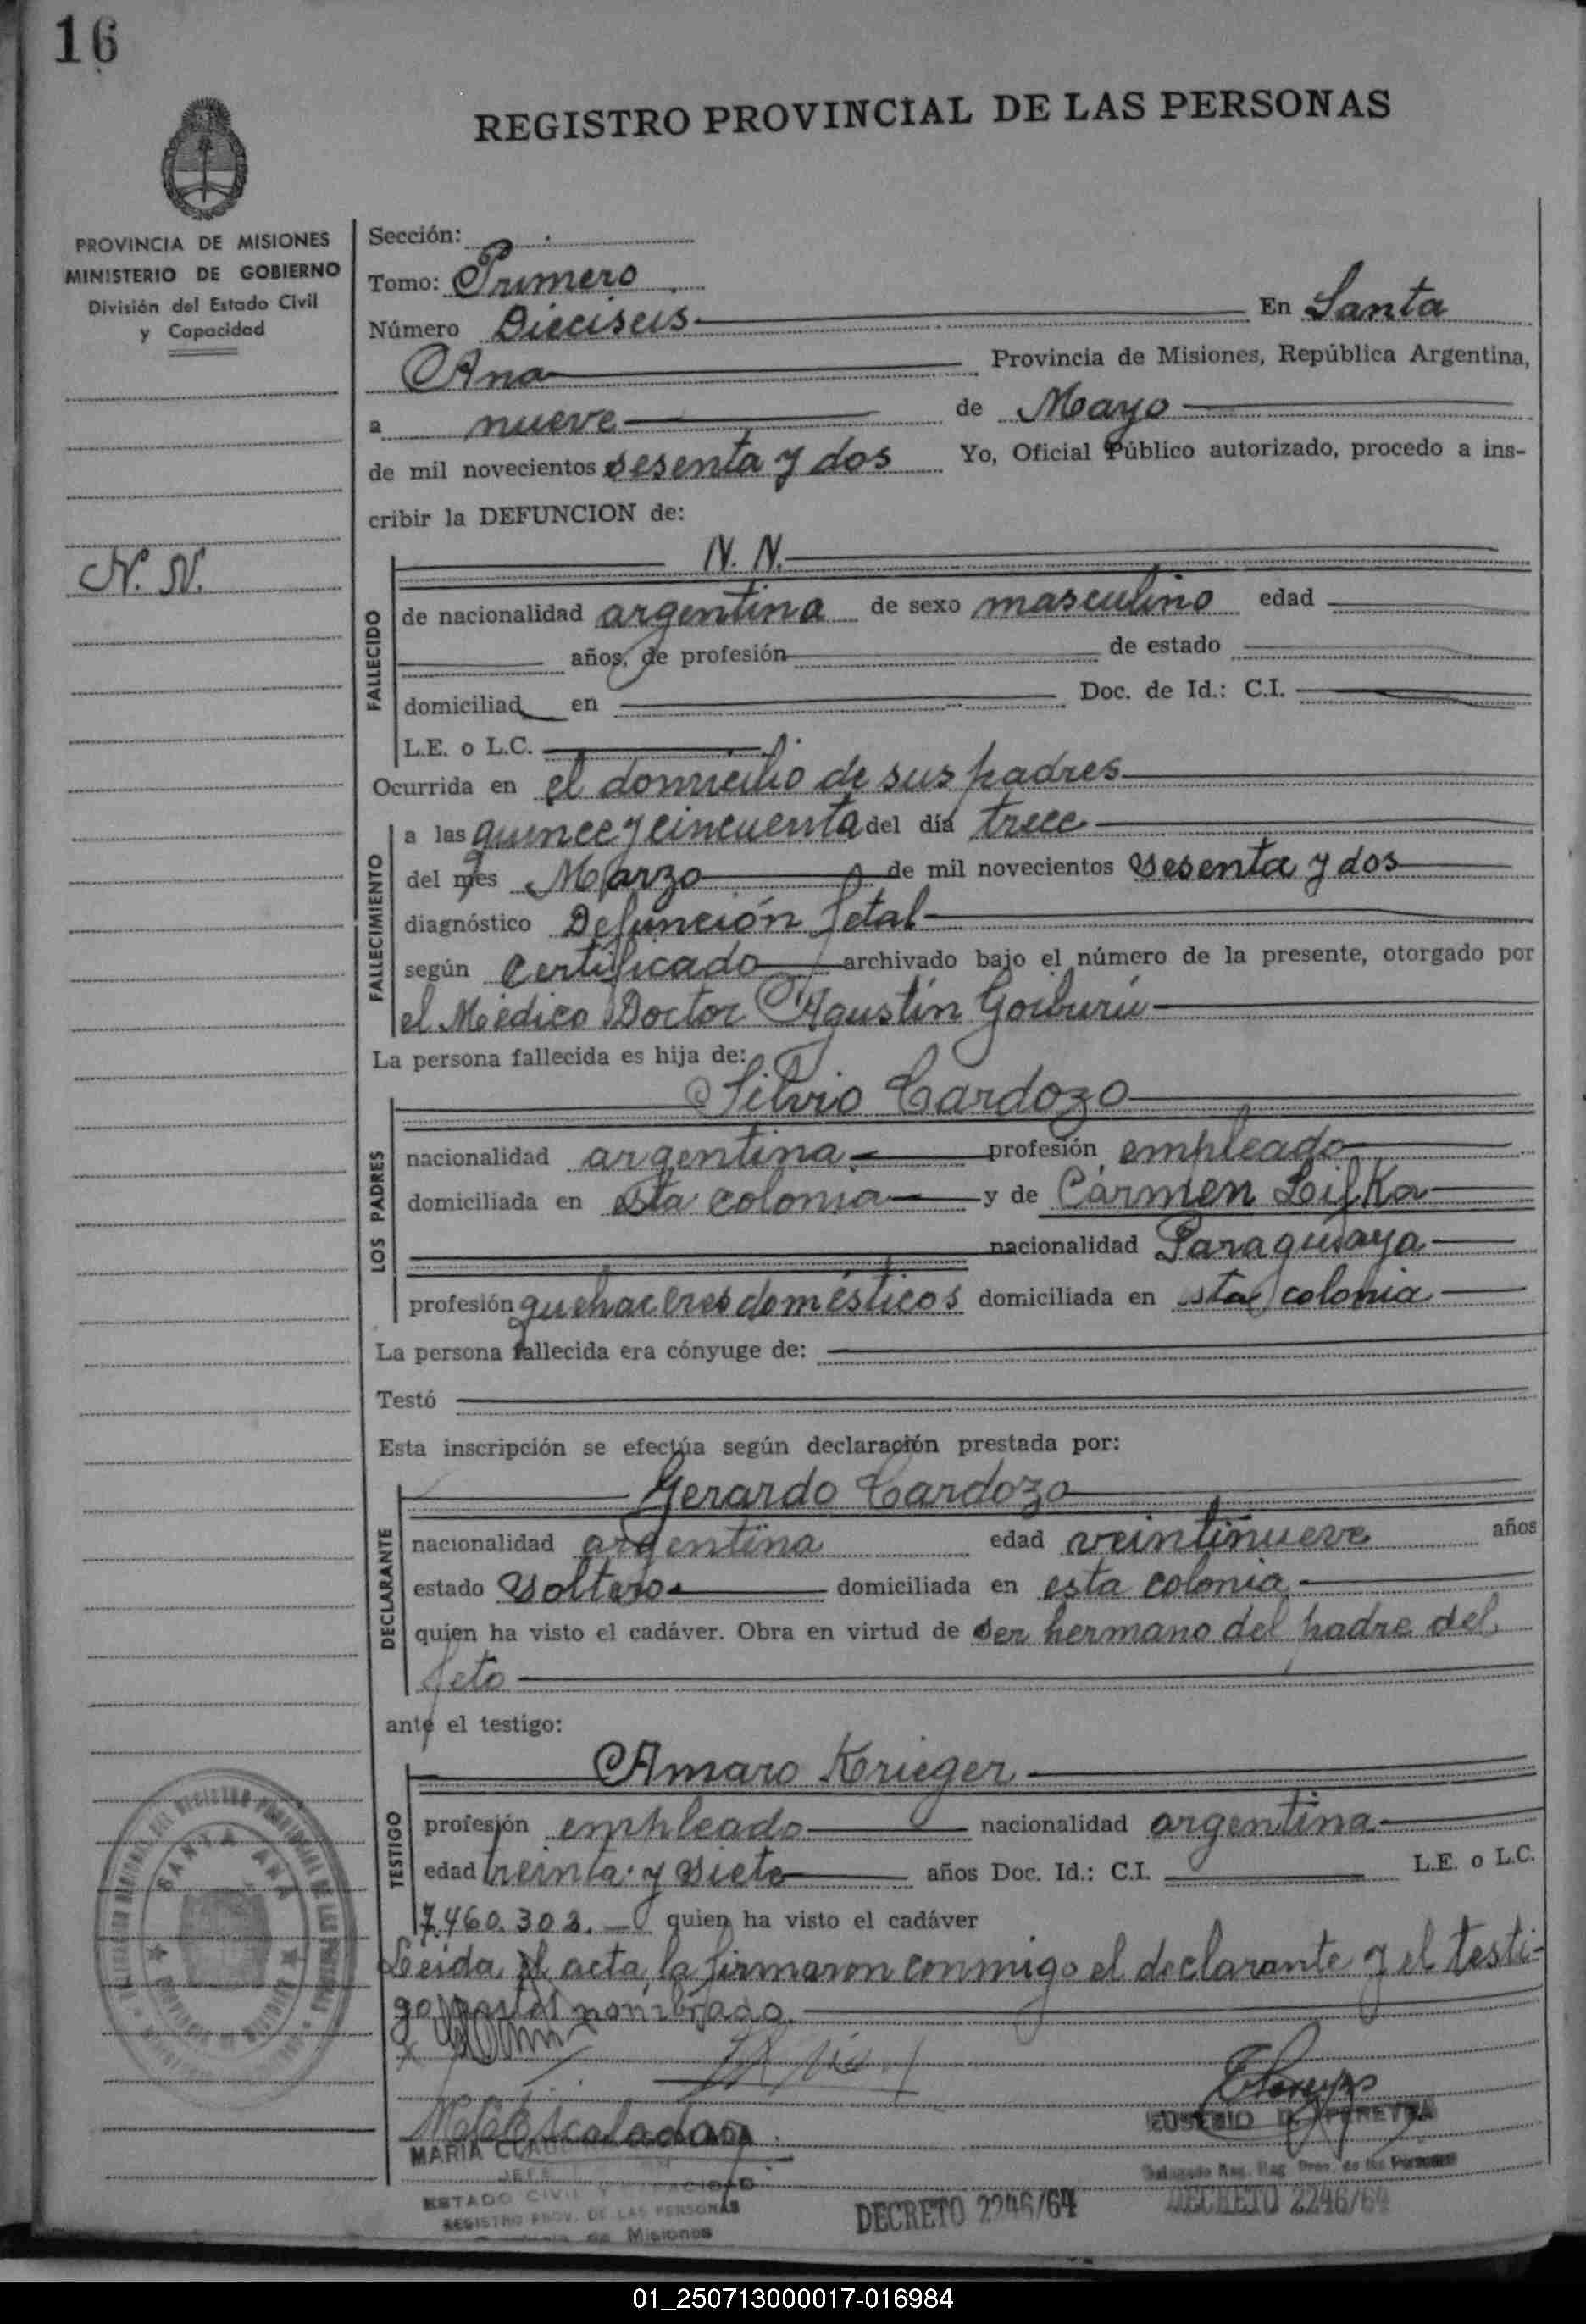 16
REGISTRO PROVINCIAL DE LAS PERSONAS
PROVINCIA DE MISIONES
MINISTERIO DE GOBIERNO
División del Estado Civil
y Capacidad
N. N.
Sección:
Tomo: Primero
Número Dieciseis En Santa
Ana Provincia de Misiones, República Argentina,
a nueve de Mayo
de mil novecientos sesenta y dos Yo, Oficial Público autorizado, procedo a ins-
cribir la DEFUNCION de:
N. N.
FALLECIDO
de nacionalidad argentina de sexo masculino edad
años, de profesión de estado
domiciliad en Doc. de Id.: C.I.
L.E. o L.C.
Ocurrida en el domicilio de sus padres
FALLECIMIENTO
a las quince y cincuenta del día trece
del mes Marzo de mil novecientos sesenta y dos
diagnóstico Defunción fetal
según certificado archivado bajo el número de la presente, otorgado por
el Médico Doctor Agustín Goiburú
La persona fallecida es hija de:
LOS PADRES
Silvio Cardozo
nacionalidad argentina profesión empleado
domiciliada en esta colonia y de Carmen Lifka
nacionalidad Paraguaya
profesión quehaceres domésticos domiciliada en sta colonia
La persona fallecida era cónyuge de:
Testó
Esta inscripción se efectúa según declaración prestada por:
DECLARANTE
Gerardo Cardozo
nacionalidad argentina edad veintinueve años
estado Soltero domiciliada en esta colonia
quien ha visto el cadáver. Obra en virtud de ser hermano del padre del
feto
ante el testigo:
TESTIGO
Amaro Krieger
profesión empleado nacionalidad argentina
edad treinta y siete años Doc. Id.: C.I. L.E. o L.C.
7.460.303. quien ha visto el cadáver
Leida el acta la firmaron conmigo el declarante y el testi-
go nombrado.
SANTA ANA
EUSEBIO D. PEREYRA
MARIA
JEFE
ESTADO CIVIL Y CAPACIDAD
REGISTRO PROV. DE LAS PERSONAS
de Misiones
DECRETO 2246/64
DECRETO 2246/64
01_250713000017-016984